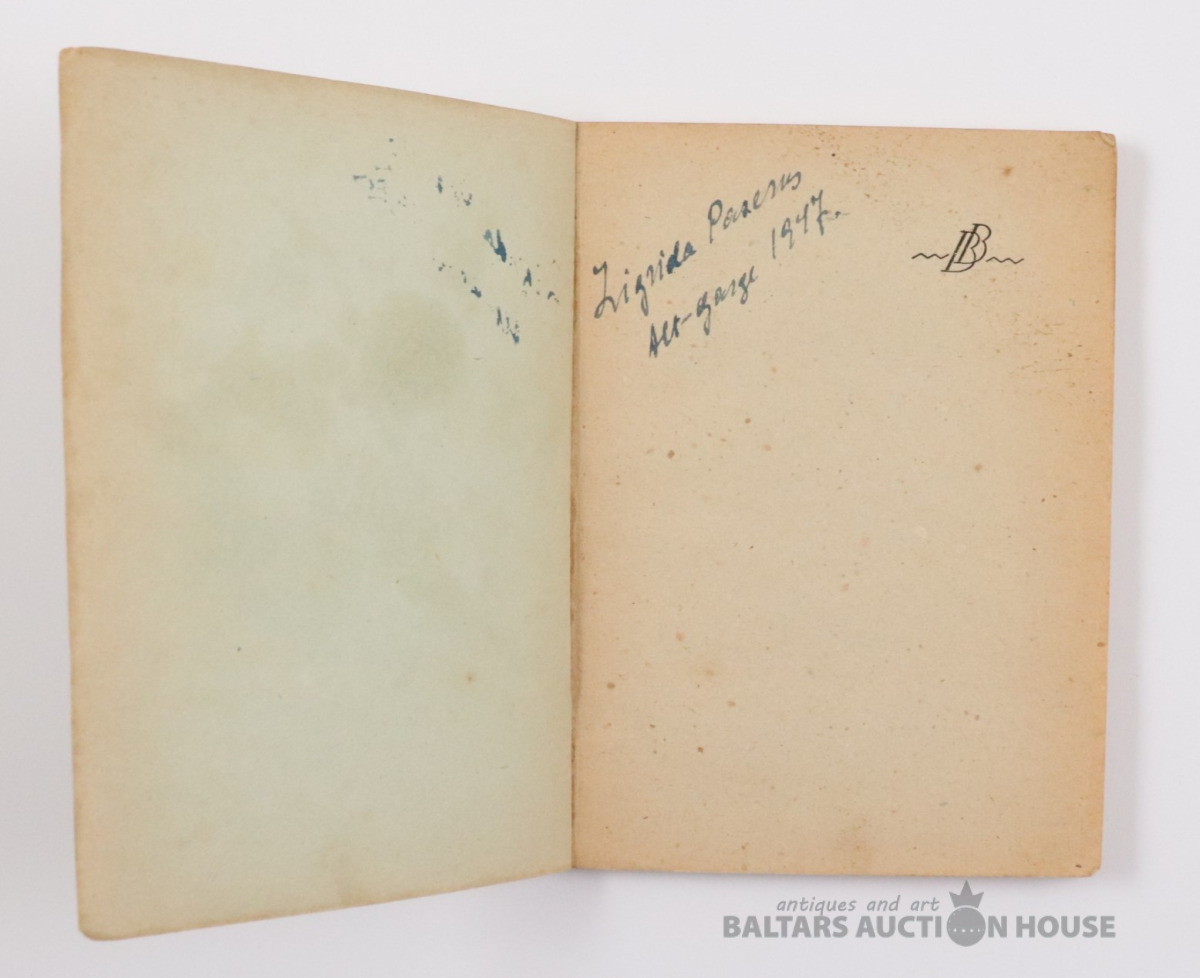 Zigrida Paserns
Alt-Garge 1947.
BB
antiques and art
BALTARS AUCTION HOUSE